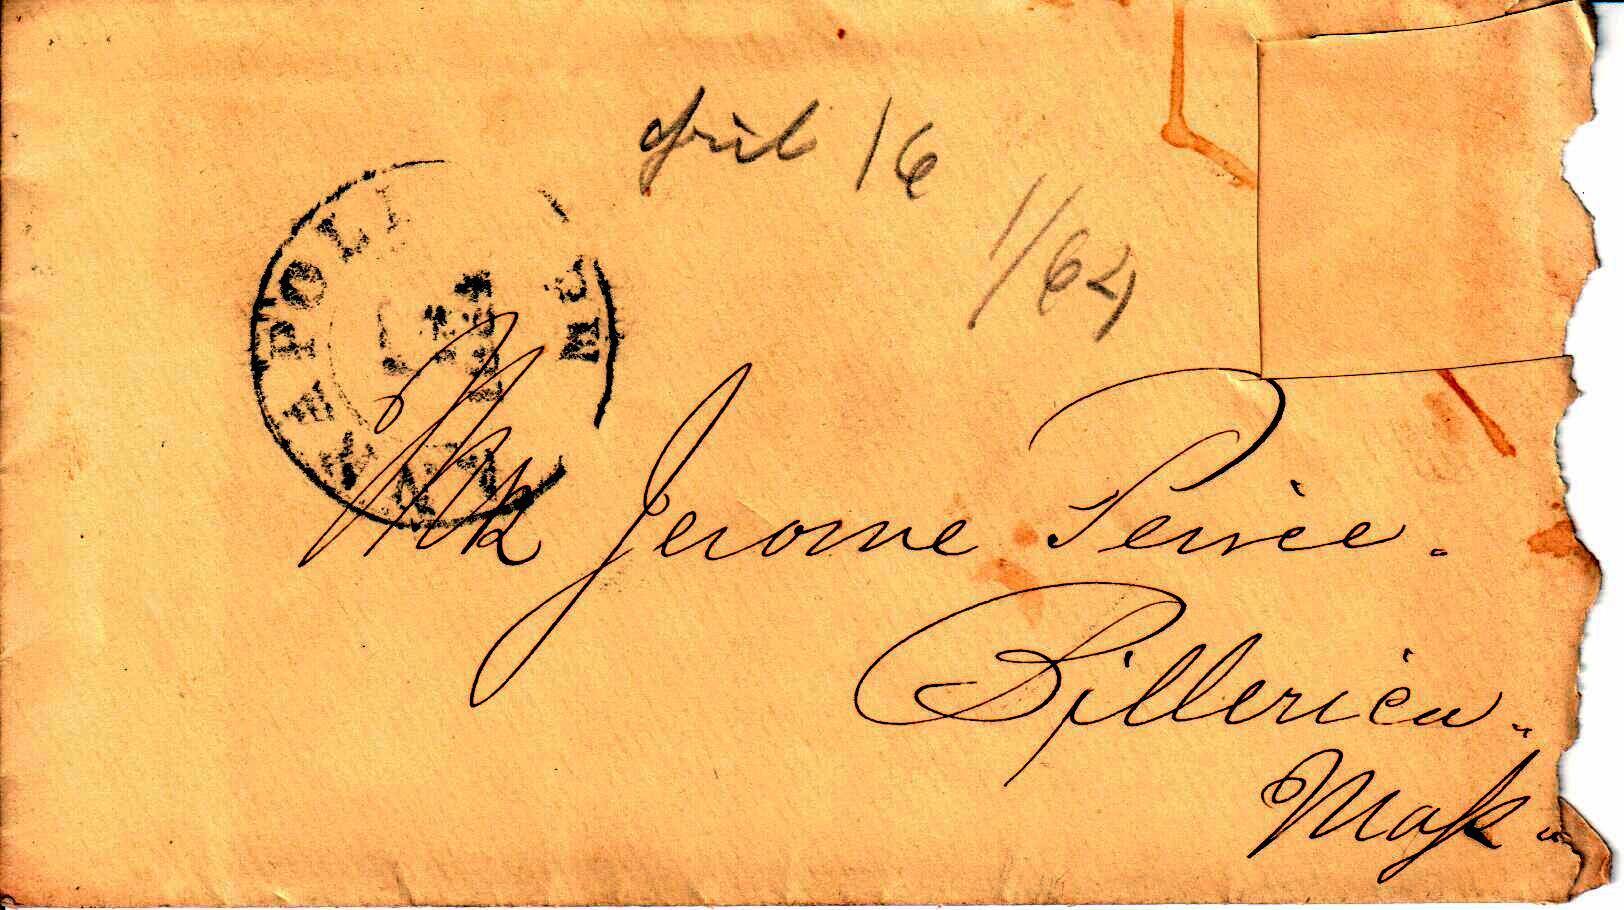 April 16
1/64
ANNAPOLI MD
Mrs Jerome Peirce.
Billerica.
Mass.